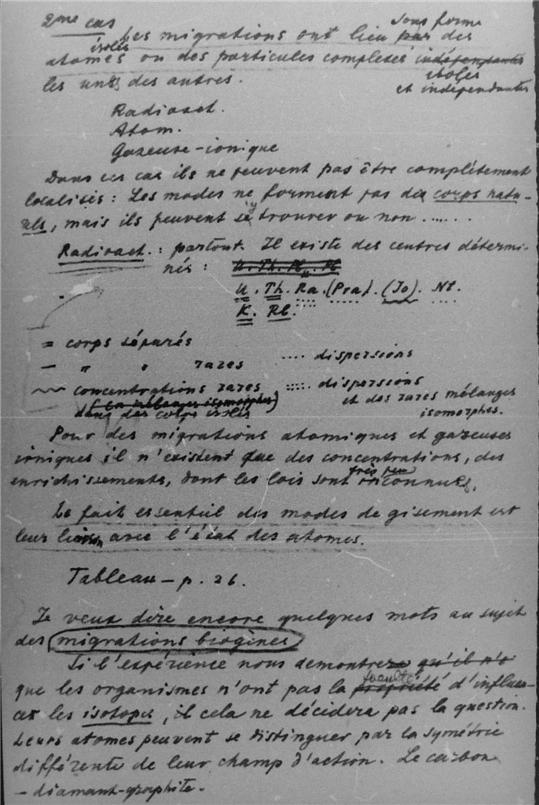 2me cas Les migrations ont lieu par des sous forme
atomes isolés ou des particules complexes indépendantes isolées
les unes des autres. et indépendantes
Radioact.
Atom.
Gazeuse-ionique
Dans ces cas ils ne peuvent pas être complètement
localisés: Les modes ne forment pas des corps natu-
rels, mais ils peuvent s'y trouver ou non ......
Radioact.: partout. Il existe des centres détermi-
nés:
U. Th. Ra. (Pra). (Jo). Nt.
K. Rb.
= corps séparés
— " " rares .... dispersions
~~ concentrations rares :::: dispersions
(en mélanges isomorphes) et des rares mélanges
dans des corps isolés isomorphes.
Pour des migrations atomiques et gazeuses
ioniques il n'existent que des concentrations, des
enrichissements, dont les lois sont très peu connues.
Le fait essentiel des modes de gisement est
leur liaison avec l'état des atomes.
Tableau – p. 26.
Je veux dire encore quelques mots au sujet
des migrations biogènes
Si l'expérience nous demontrera qu'il n'a
que les organismes n'ont pas la propriété faculté d'influen-
cer les isotopes, il cela ne décidera pas la question.
Leurs atomes peuvent se distinguer par la symétrie
différente de leur champ d'action. Le carbon
– diamant-graphite.